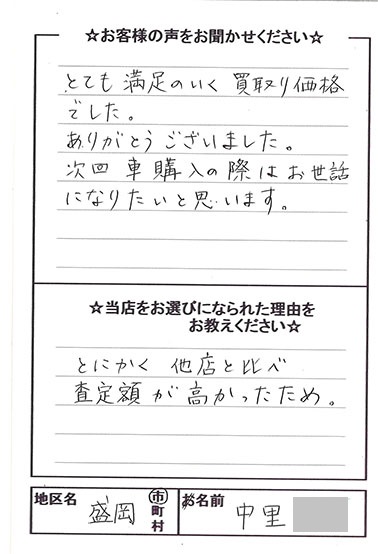 ☆お客様の声をお聞かせください☆
とても満足のいく買取り価格
でした。
ありがとうございました。
次回車購入の際はお世話
になりたいと思います。
☆当店をお選びになられた理由を
お教えください☆
とにかく他店と比べ
査定額が高かったため。
地区名 盛岡 市町村 お名前 中里